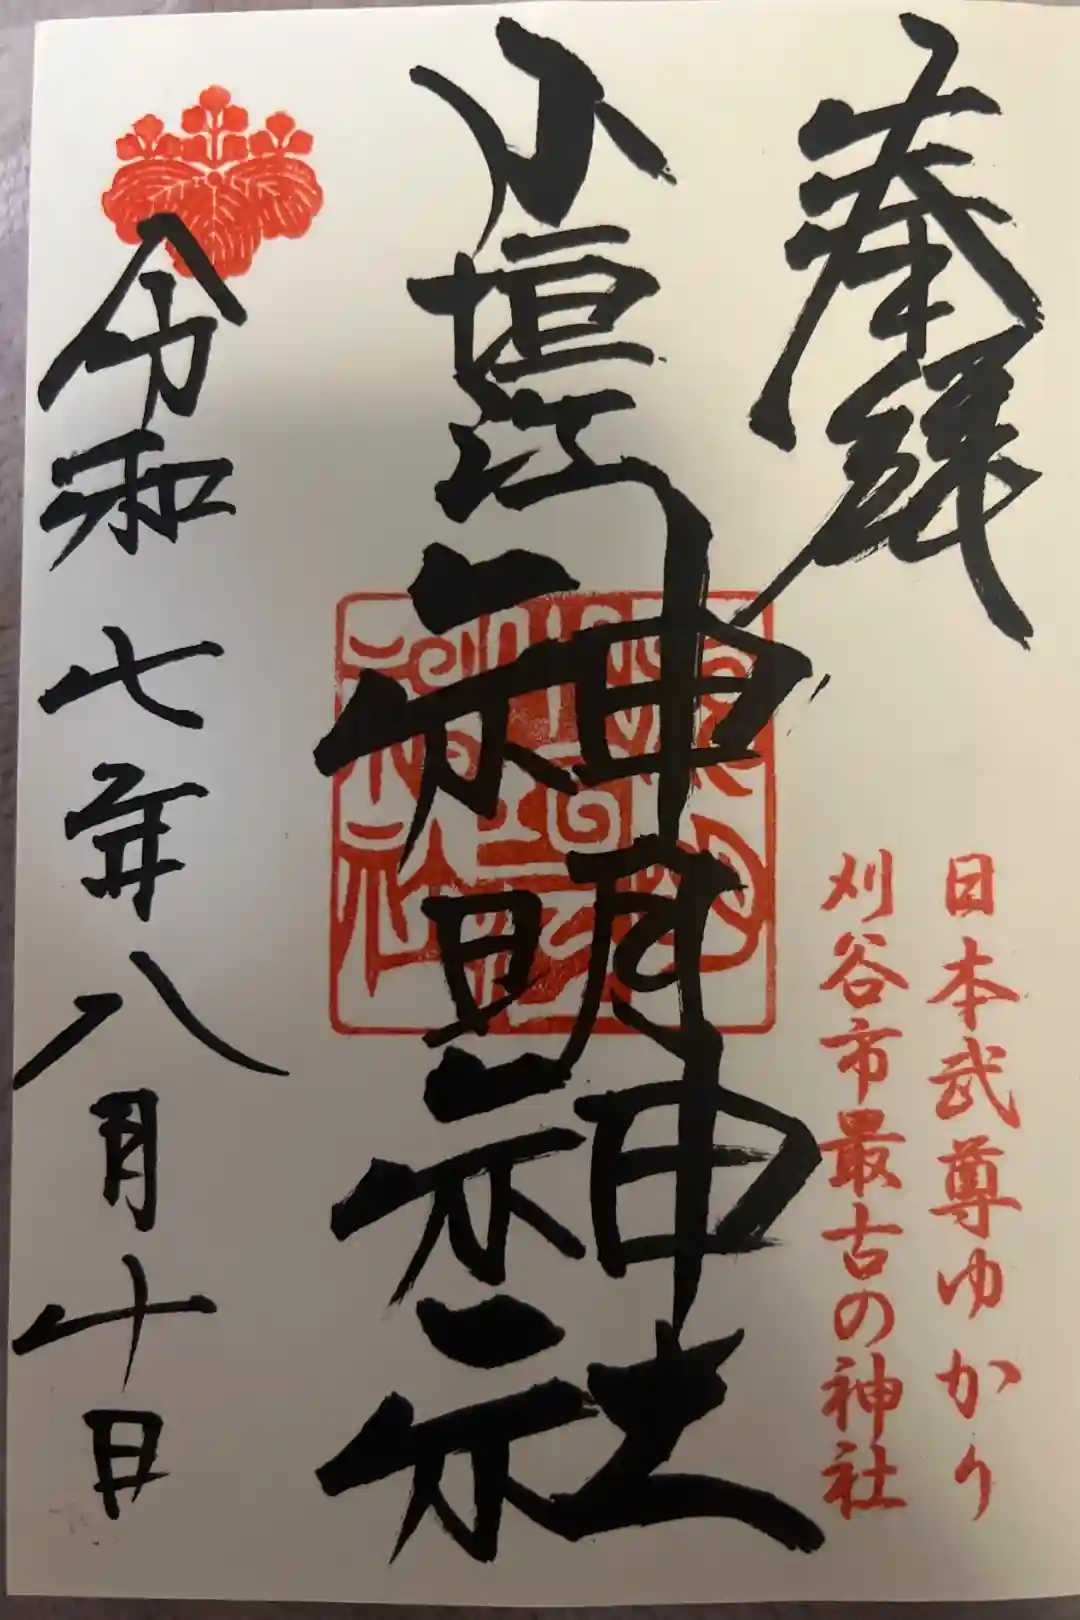 奉拝
日本武尊ゆかり
刈谷市最古の神社
小垣江神明神社
令和七年八月十日